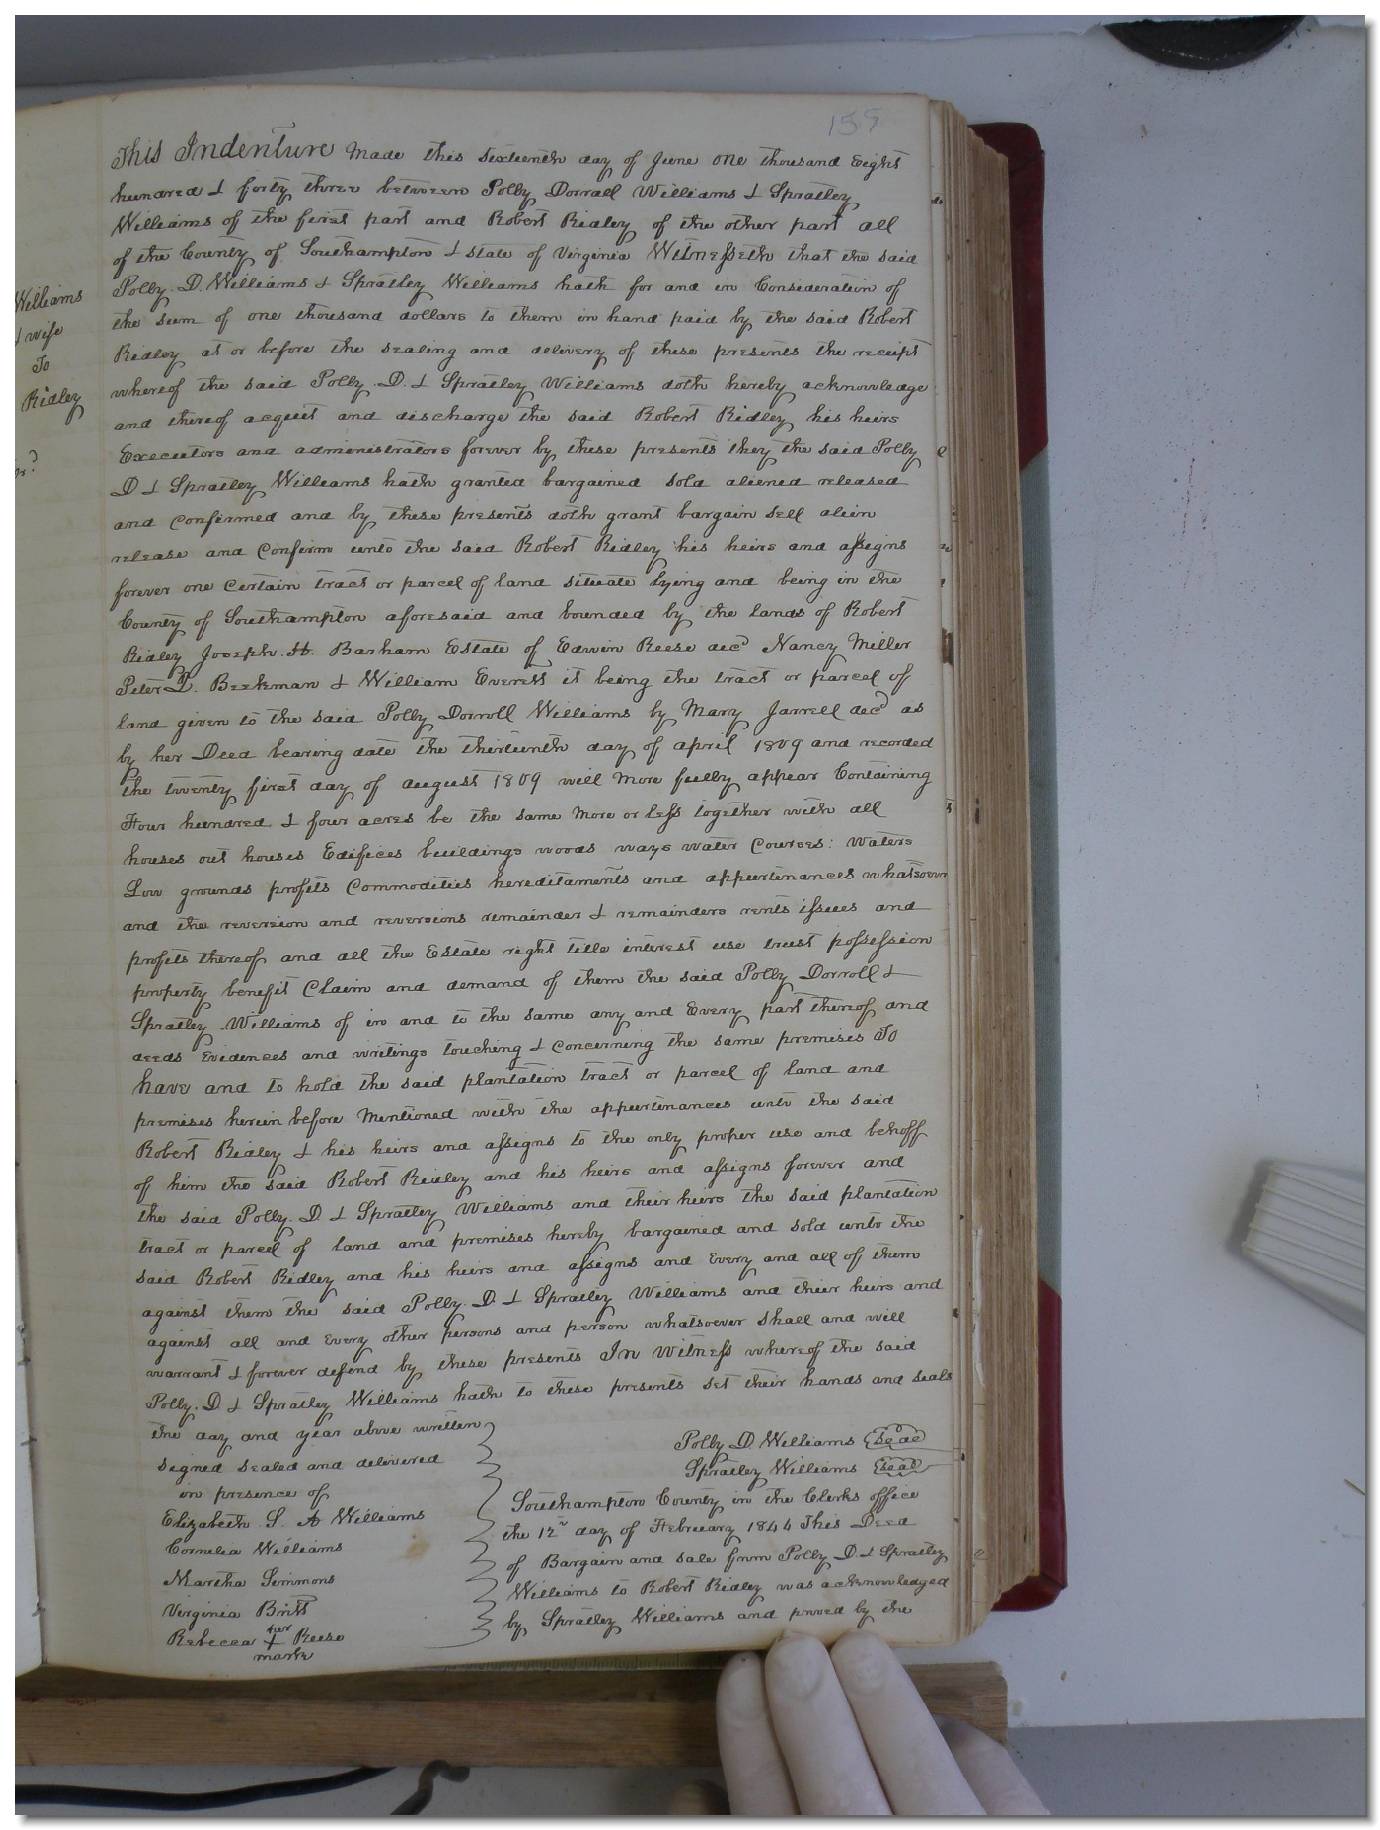 155
This Indenture Made this sixteenth day of June one thousand Eight
hundred & forty three between Polly Dorrall Williams & Spratley
Williams of the first part and Robert Ridley of the other part all
of the County of Southampton & state of Virginia Witnesseth that the said
Polly D. Williams & Spratley Williams hath for and in Consideration of
the sum of one thousand dollars to them in hand paid by the said Robert
Ridley at or before the sealing and delivery of these presents the receipt
whereof the said Polly D. & Spratley Williams doth hereby acknowledge
and thereof acquit and discharge the said Robert Ridley his heirs
Executors and administrators forever by these presents they the said Polly
D & Spratley Williams hath granted bargained sold aliened released
and confirmed and by these presents doth grant bargain sell alien
release and Confirm unto the said Robert Ridley his heirs and assigns
forever one Certain tract or parcel of land situate lying and being in the
County of Southampton aforesaid and bounded by the lands of Robert
Ridley Joseph. H. Barham Estate of Edwin Reese decd Nancy Miller
Peter D. Beekman & William Everett it being the tract or parcel of
land given to the said Polly Dorroll Williams by Mary Jarrell decd as
by her Deed bearing date the thirteenth day of april 1809 and recorded
the twenty first day of august 1809 will More fully appear Containing
Four hundred & four acres be the same More or less together with all
houses out houses Edifices buildings woods ways water Courses: Waters
Low grounds profits Commodities hereditaments and appurtinances whatsoever
and the reversion and reversions remainder & remainders rents issues and
profits thereof and all the Estate right title interest use trust possession
property benefit Claim and demand of them the said Polly Dorroll &
Spratley Williams of in and to the same any and Every part thereof and
deeds Evidences and writings touching & Concerning the same premises To
have and to hold the said plantation tract or parcel of land and
premises herein before Mentioned with the appurtinances unto the said
Robert Ridley & his heirs and assigns to the only proper use and behoff
of him the said Robert Ridley and his heirs and assigns forever and
the said Polly. D. & Spratley Williams and their heirs the said plantation
tract or parcel of land and premises hereby bargained and sold unto the
said Robert Ridley and his heirs and assigns and Every and all of them
against them the said Polly. D. & Spratley Williams and their heirs and
against all and Every other persons and person whatsoever Shall and will
warrant & forever defend by these presents In Witness whereof the said
Polly. D. & Spratley Williams hath to these presents set their hands and seals
the day and year above written
signed sealed and delivered
in presence of
Elizabeth. S. A Williams
Cornelia Williams
Martha Simmons
Virginia Britt
her
Rebecca + Reese
mark
Polly D Williams seal
Spratley Williams seal
Southampton County in the Clerks office
the 12th day of February 1844 This Deed
of Bargain and sale from Polly D. & Spratley
Williams to Robert Ridley was acknowledged
by Spratley Williams and proved by the
Williams
& wife
To
Ridley